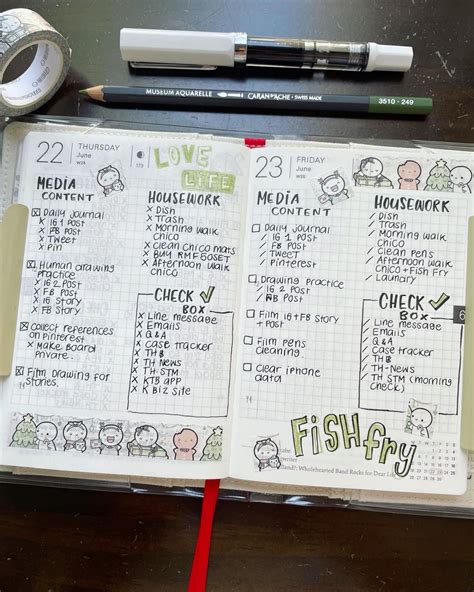 MUSEUM AQUARELLE CARAN D'ACHE SWISS MADE 3510 · 249
22 THURSDAY
June
LOVE
LIFE
MEDIA
CONTENT
Daily Journal
X IG 1 Post
X FB Post
X Tweet
X Pin
Human drawing
practice
X IG 2 Post
X FB Post
X IG Story
X FB Story
Collect references
on Pinterest
X Make Board
private.
Film Drawing for
Stories.
HOUSEWORK
X Dish
X Trash
X Morning walk
chico
X Clean chico mats
X Buy RMF 50SET
X Afternoon walk
chico
CHECK ✓
BOX
X Line message
X Emails
X Q&A
X Case tracker
X THB
X TH-News
X TH-STM
X KTB app
X K Biz site
23 FRIDAY
June
MEDIA
CONTENT
Daily Journal
/ IG 1 Post
/ FB Post
/ Tweet
/ Pinterest
Drawing practice
/ IG 2 Post
/ FB Post
Film IG+FB Story
+ Post
Film Pens
Cleaning
Clear iphone
data
HOUSEWORK
/ Dish
/ Trash
/ Morning walk
chico
/ Clean pens
/ Afternoon walk
chico + Fish Fry
/ Laundry
CHECK ✓
BOX
/ Line message
/ Emails
/ Q&A
/ Case tracker
/ THB
/ TH-News
/ TH STM (morning
check)
6
FiSH fry
Wholehearted Band Rocks for Dear Life